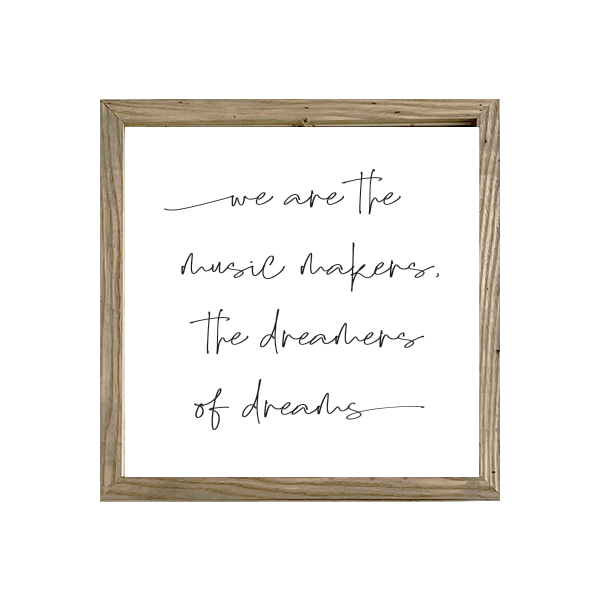 we are the
music makers,
the dreamers
of dreams